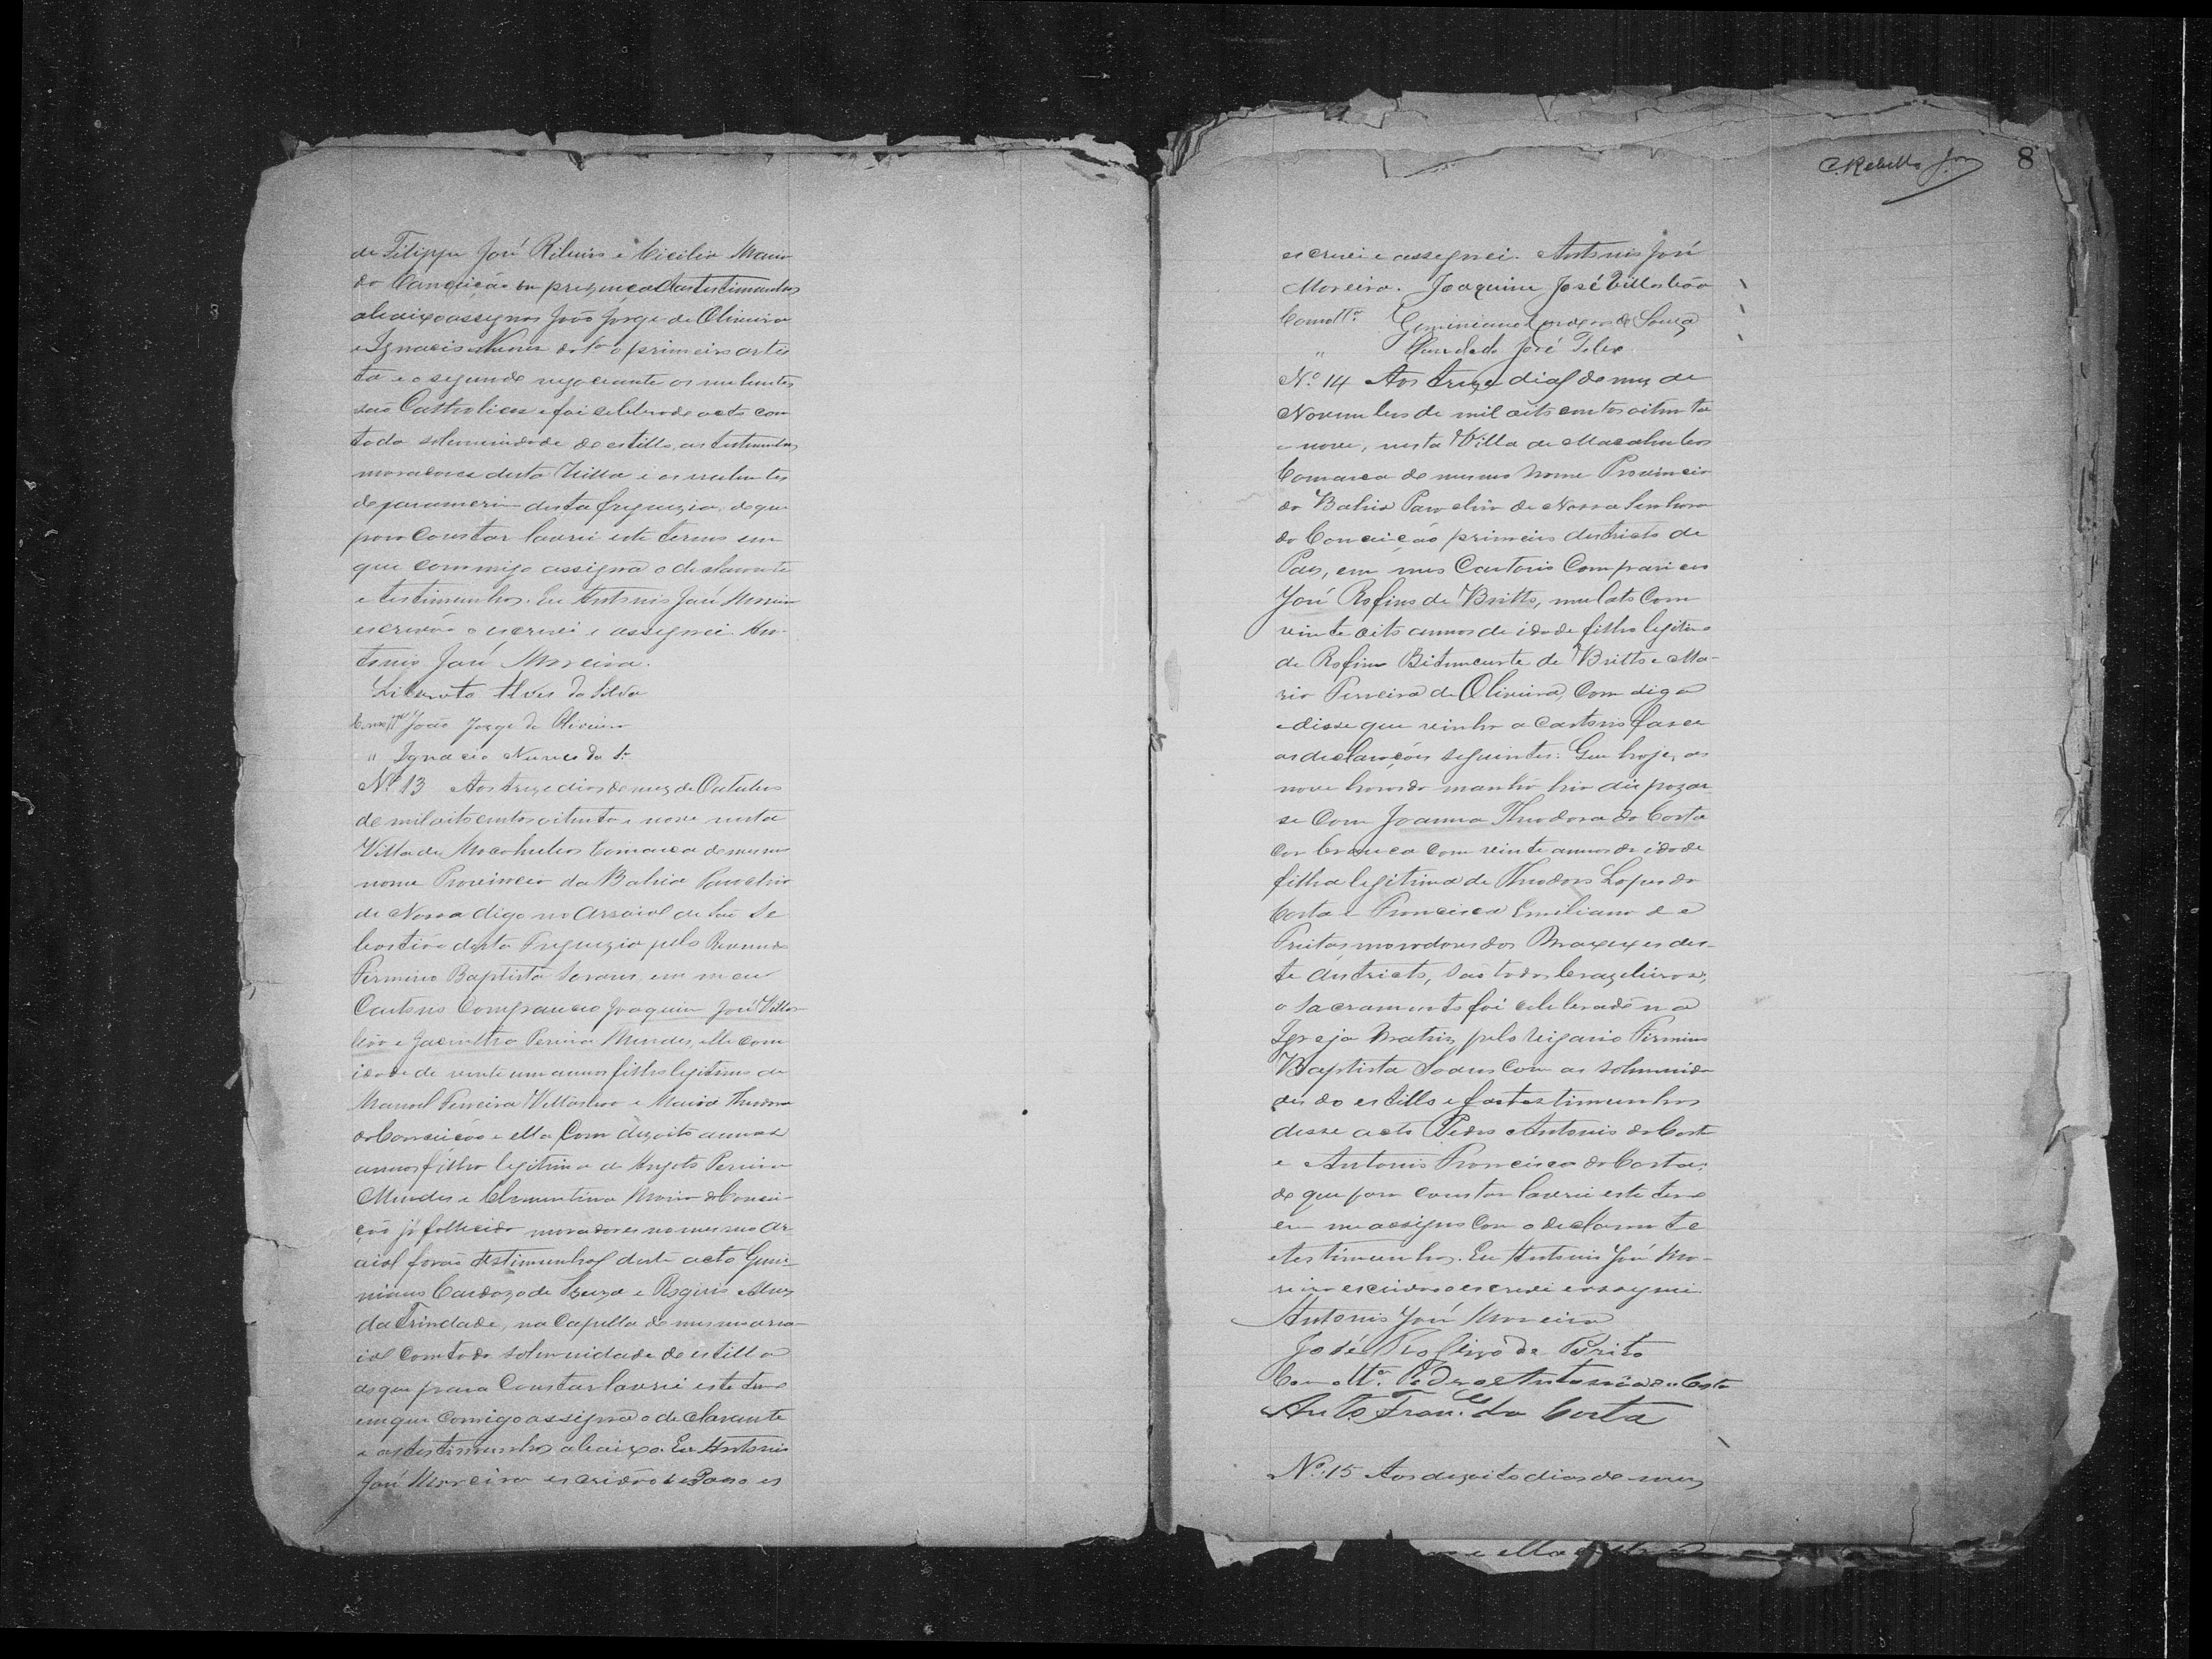 de Filippe José Ribeiro e Cicilia Maria
da Conceição em presença das testimunhas
abaixo assignas João Jorge de Oliveira
e Ignacio Nunes da Sª o primeiro artis
ta e o segundo negociante os nubentes
são Catholicos e foi celebrado acto com
toda solemnidade do estillo, as testimunhas
moradores desta Villa e os nubentes
desta freguizia, de que
para constar lavrei este termo em
que commigo assigna o declarante
e testimunhas. Eu Antonio José Moreira
escrivão o escrevi e assignei. An-
tonio José Moreira.
Liberato Alves da Silva
João Jorge de Oliveira
" Ignacio Nunes da Sª
Nº 13 Aos treze dias do mez de Outubro
de mil oito centos oitenta e nove nesta
Villa de Macahubas Comarca do mesmo
nome Provincia da Bahia Parochia
de Nossa digo no Arraial de São Se
bastião desta Freguizia pelo Reverendo
Firmino Baptista Soares, em meu
Cartorio Compareceo Joaquim José Villas-
bôa e Jacintha Pereira Mendes, elle com
idade de vinte um annos filho legitimo de
Manoel Ferreira Villasboa e Maria Theodora
da Conceição e ella com dezoito annos
annos filha legitima de Angelo Pereira
Mendes e Clementina Maria da Concei-
ção já fallecida moradores no mesmo Ar
aial forão testimunhas deste acto Gemi-
niano Cardozo de Souza e Rogerio Alves
da Trindade, na Capella do mesmo arra-
ial com toda solemnidade do estillo
do que para Constar lavrei este termo
em que comigo assigna o declarante
e as testimunhas abaixo. Eu Antonio
José Moreira escrivão de Pas o es
C. Rebello Jor 8
escrevi e assegnei. Antonio José
Moreira. Joaquim José Villasbôa
Como ttª Geminiano Cardozo de Souza
" José Teles
Nº 14 Aos treze dias do mez de
Novembro de mil oito centos oitenta
e nove, nesta Villa de Macahubas
Comarca do mesmo nome Provincia
da Bahia Parochia de Nossa Senhora
da Conceição primeiro districto de
Pas, em meu Cartorio Compareceo
José Rofino de Britto, mulato com
vinte oito annos de idade filho legitimo
de Rofino Bitencurte de Britto e Ma-
ria Ferreira de Oliveira, com digo
e disse que vinha a cartorio fazer
as declarações seguintes: Que hoje, as
nove horas da manhã hia dispozar
se com Joanna Theodora da Costa
cor branca com vinte annos de idade
filha legitima de Theodoro Lopes da
Costa e Francisca Emiliana de
Freitas moradores dos des-
te districto, são todos brazileiros,
o sacramento foi celebrado na
Igreja Matriz pelo Vigario Firmino
Baptista Soares com as solemnida
des do estillo e foi testimunhas
desse acto Pedro Antonio da Costa
e Antonio Francisco da Costa:
do que para constar lavrei este termo
em me assigno com o declarante
e testimunhas. Eu Antonio José Mo-
reira escrivão o escrevi e assignei.
Antonio José Moreira
José Rofino de Brito
Como ttª Pedro Antonio da Costa
Antº Franco da Costa
Nº 15 Aos dezoito dias do mez